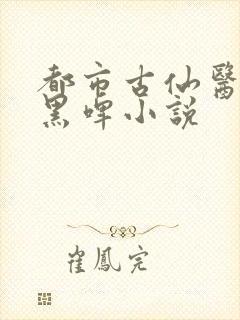 都市古仙醫
黑啤小說
崔鳳完